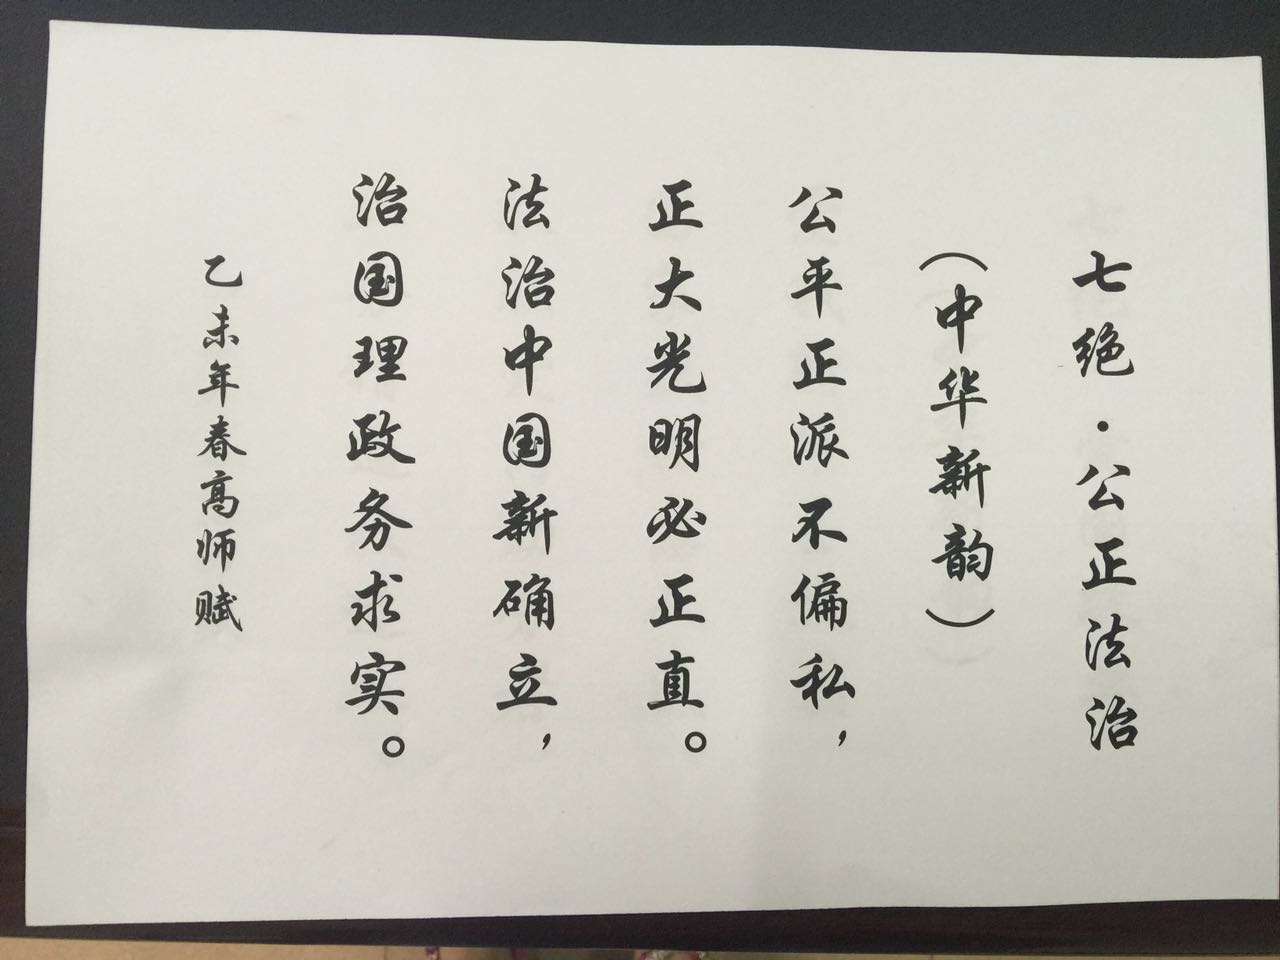 七绝·公正法治
（中华新韵）
公平正派不偏私，
正大光明必正直。
法治中国新确立，
治国理政务求实。
乙未年春高师赋